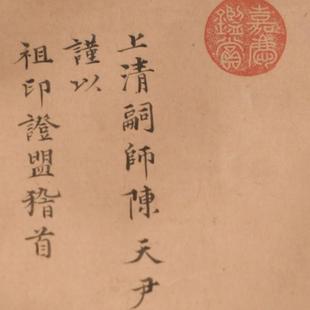 嘉慶鑑賞
上清嗣師陳天尹
謹以
祖印證盟稽首